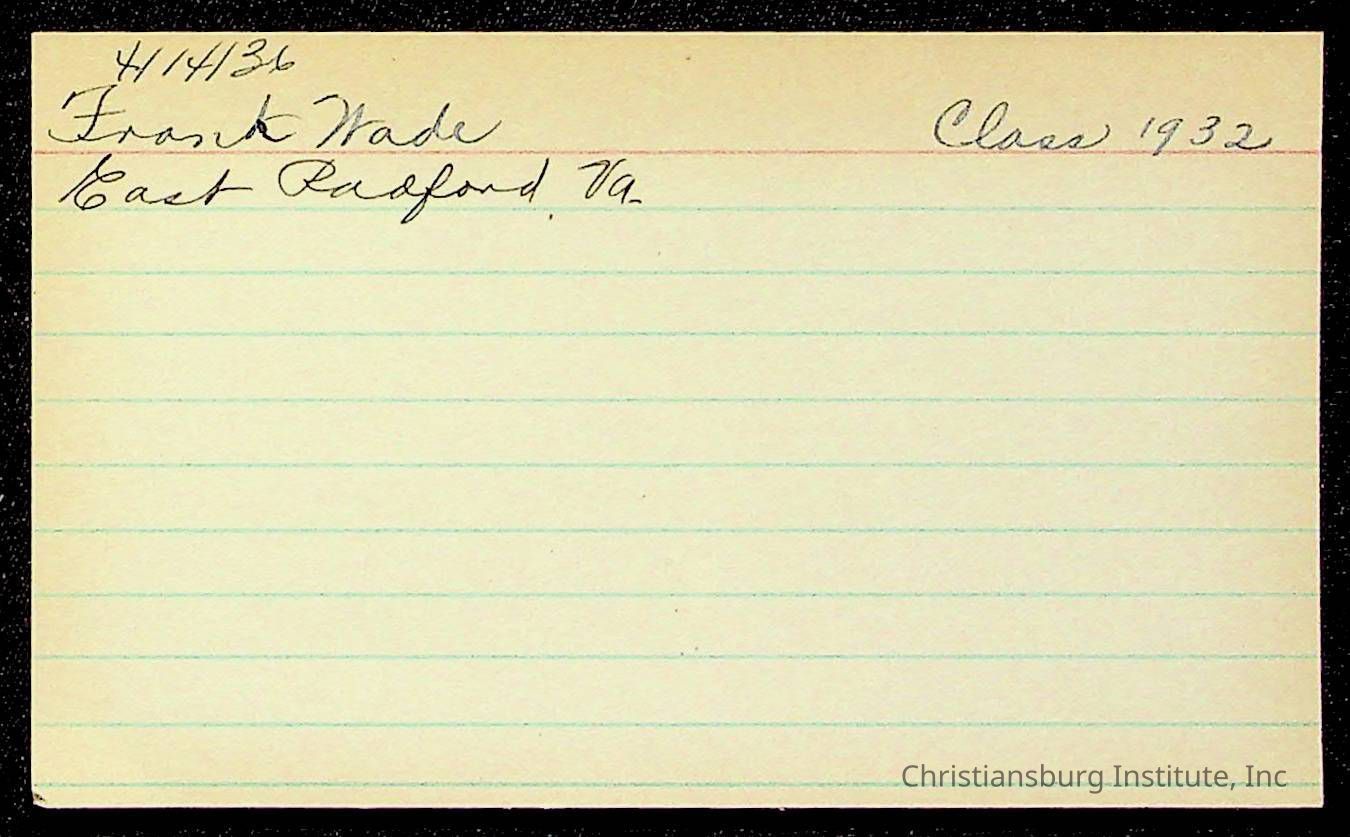 4/14/36
Frank Wade Class 1932
East Radford, Va.
Christiansburg Institute, Inc